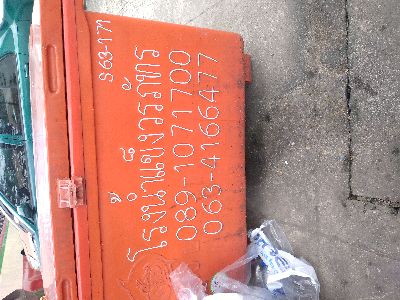 S63-171
โรงน้ำแข็งวรภัทร
089-1071700
063-4166477